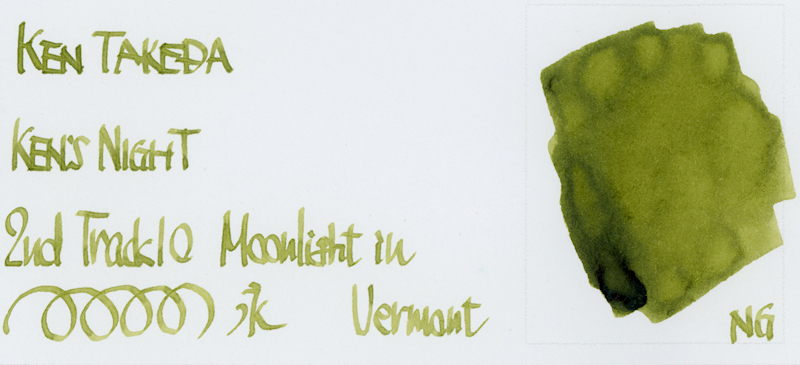 KEN TAKEDA
KEN'S NIGHT
2nd Track10 Moonlight in
Vermont
NG